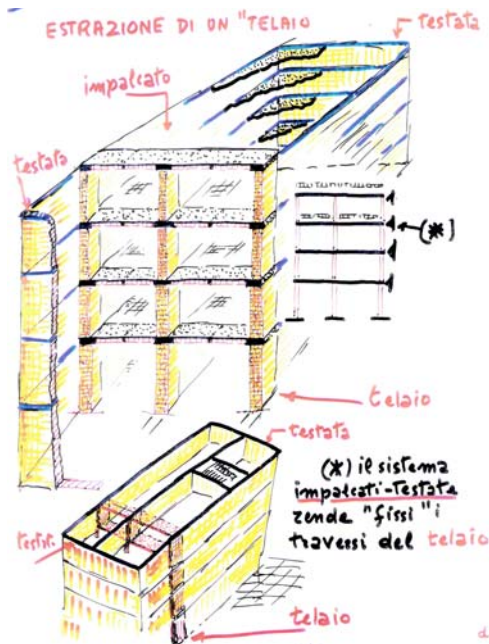 ESTRAZIONE DI UN "TELAIO
testata
impalcato
testata
(*)
telaio
testata
(*) il sistema
impalcati-testate
rende "fissi" i
traversi del telaio
testat.
telaio
d